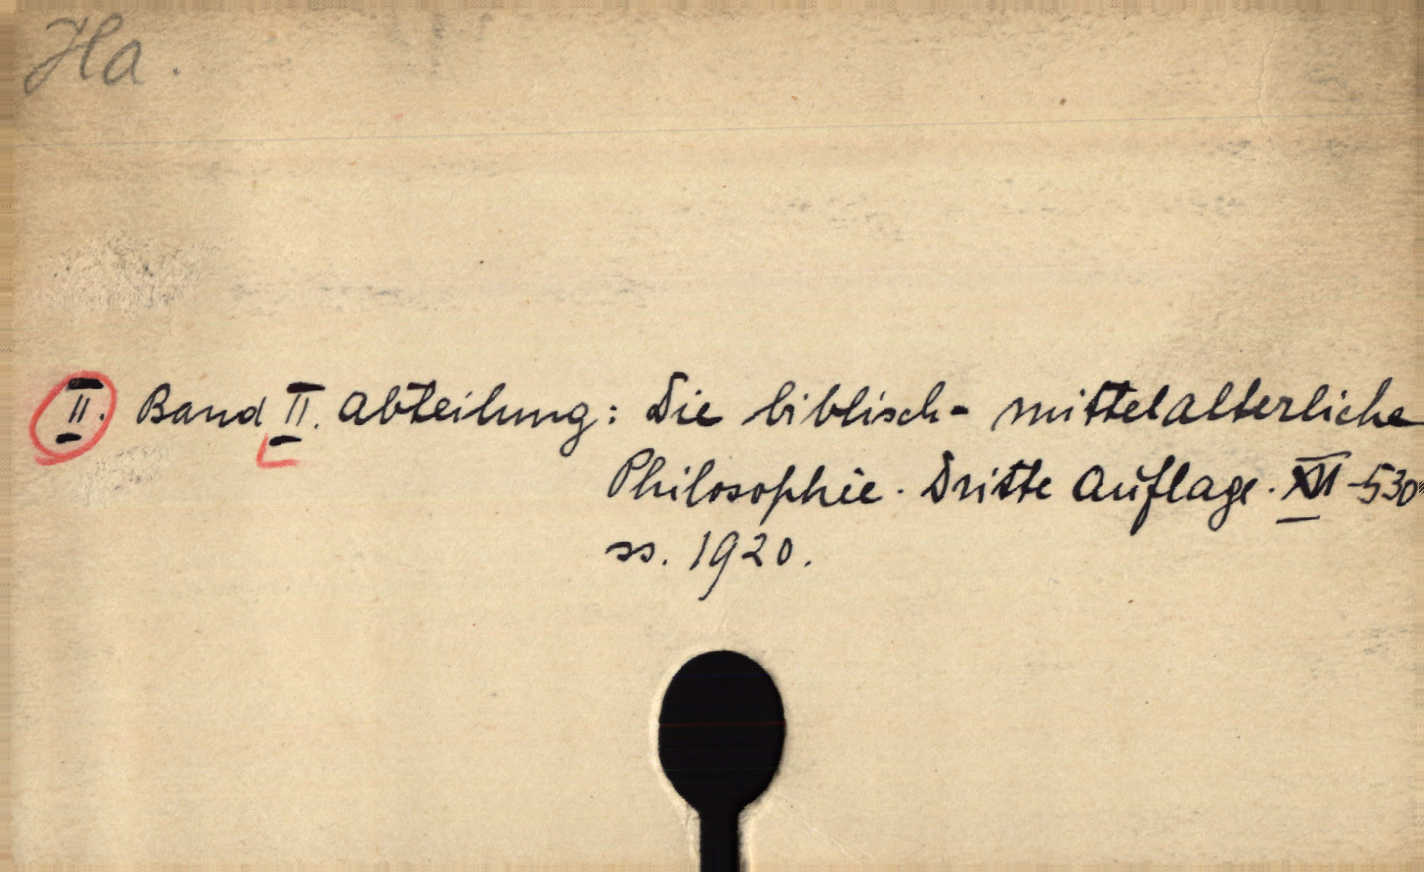 Ha.
II. Band II. Abteilung: Die biblisch-mittelalterliche
Philosophie. Dritte Auflage. XII-530
ss. 1920.